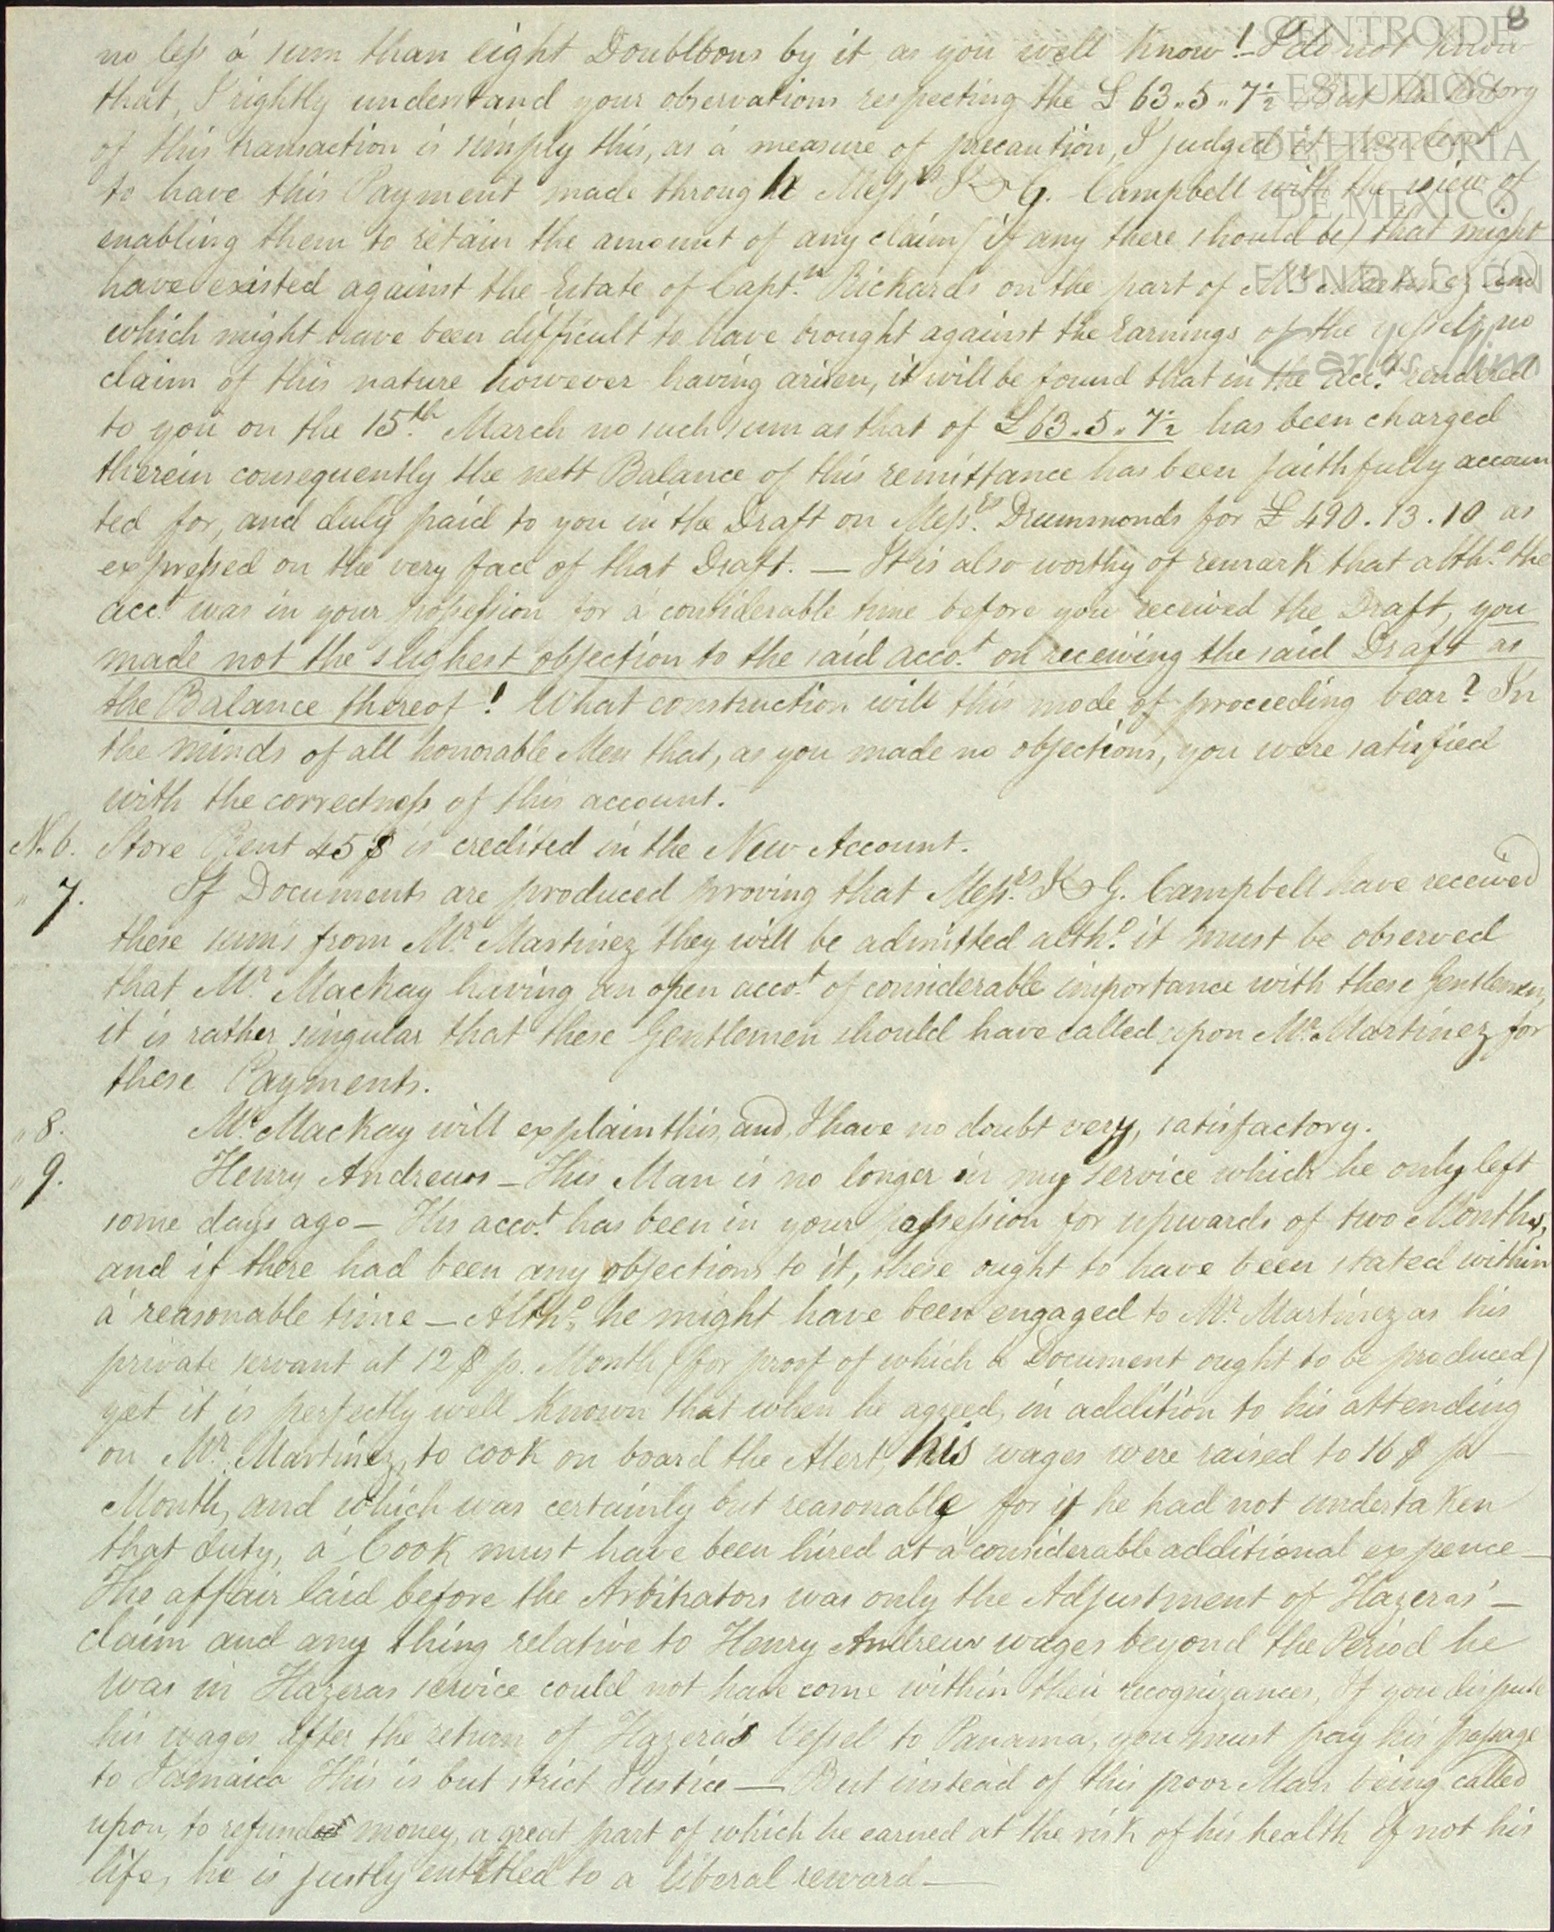 8
CENTRO DE
ESTUDIOS
DE HISTORIA
DE MEXICO
FUNDACION
Carlos Slim
no less á sum than eight Doubloons by it as you well know! – I do not know
that, I rightly understand your observations respecting the £ 63..5..7½ But the history
of this transaction is simply this, as á measure of precaution, I judged it
to have this Payment made through Messrs K & G. Campbell with the view of
enabling them to retain the amount of any claim (if any there should be) that might
have existed against the Estate of Captn Richards on the part of Mr Martinez and
which might have been difficult to have brought against the Earnings of the vessel, no
claim of this nature however having arisen, it will be found that in the acct. rendered
to you on the 15th. March no such sum as that of £ 63..5..7½ has been charged
therein consequently the nett Balance of this remittance has been faithfully accoun
ted for, and duly paid to you in the Draft on Messrs. Drummonds for £ 490.13.10 as
expressed on the very face of that Draft. — It is also worthy of remark that altho. the
acct. was in your possession for á considerable time before you received the Draft, you
made not the slighest objection to the said accot. on receiving the said Draft as
the Balance thereof! What construction will this mode of proceeding bear? In
the minds of all honorable Men that, as you made no objections, you were satisfied
with the correctness of this account.
N. 6. Store Rent 45 $ is credited in the New Account.
" 7. If Documents are produced proving that Messrs. K & G. Campbell have received
these sums from Mr. Martinez they will be admitted altho. it must be observed
that Mr. Mackay having an open accot. of considerable importance with these Gentlemen,
it is rather singular that these Gentlemen should have called upon Mr. Martinez for
these Payments.
" 8. Mr. MacKay will explain this, and, I have no doubt very, satisfactory.
" 9. Henry Andrews – This Man is no longer in my service which he only left
some days ago – His accot. has been in your possession for upwards of two Months,
and if there had been any objections to it, these ought to have been stated within
á reasonable time – Altho. he might have been engaged to Mr. Martinez as his
private servant at 12 $ p. Month (for proof of which a Document ought to be produced)
yet it is perfectly well known that when he agreed, in addition to his attending
on Mr. Martinez, to cook on board the Alert, his wages were raised to 16 $ p
Month, and which was certainly but reasonable for if he had not undertaken
that duty, á Cook must have been hired at á considerable additional expence –
The affair laid before the Arbitrators was only the Adjustment of Hazeras' –
claim and any thing relative to Henry Andrews wages beyond the Period he
was in Hazeras service could not have come within their recognizances, If you dispute
his wages after the return of Hazera's Vessel to Panama, you must pay his passage
to Jamaica This is but strict Justice — But instead of this poor Man being called
upon, to refund money, a great part of which he earned at the risk of his health if not his
life, he is justly entitled to a liberal reward —